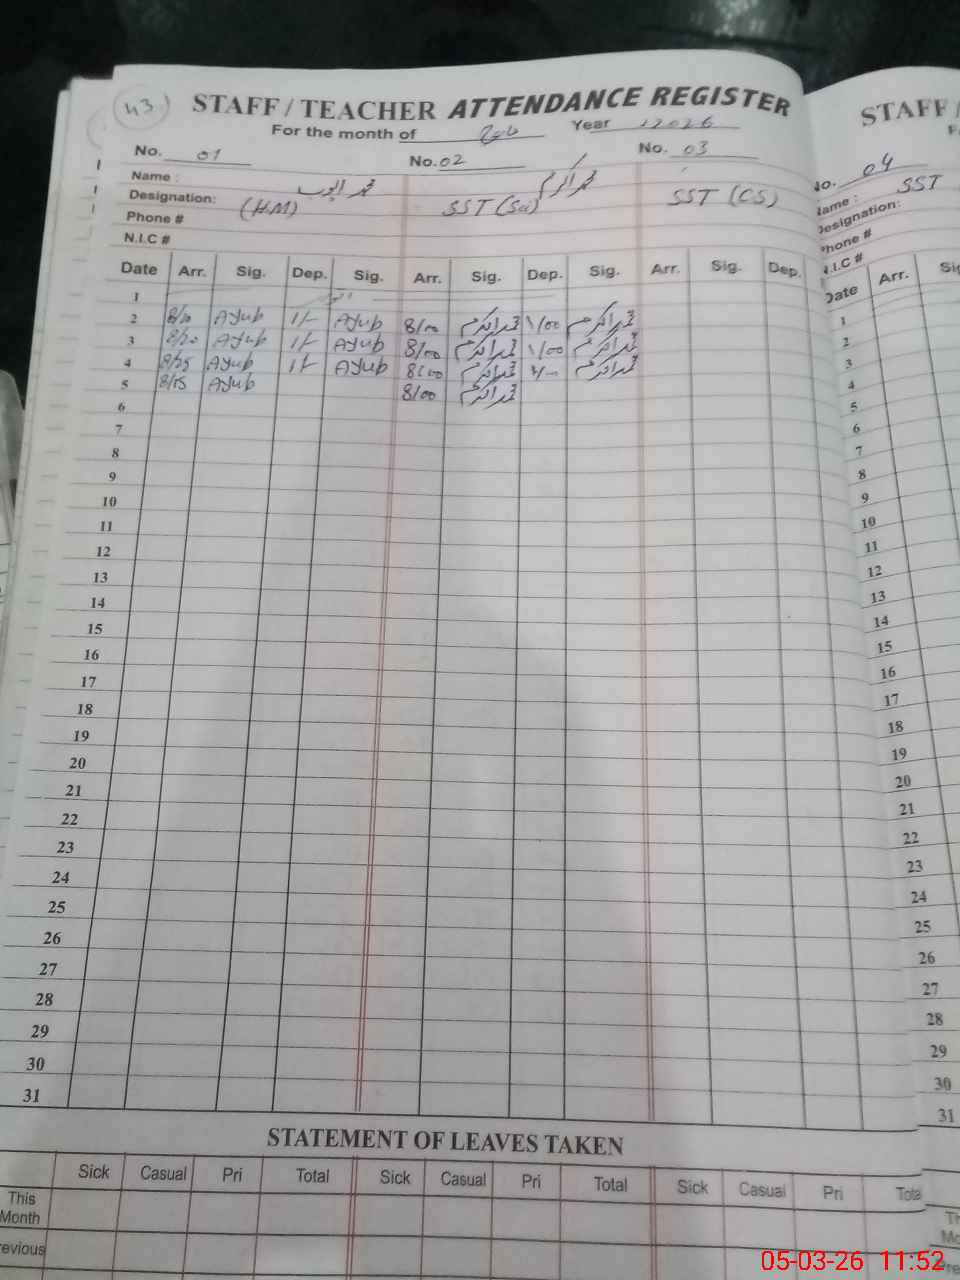 43
STAFF / TEACHER ATTENDANCE REGISTER
STAFF /
For the month of Year 2026
No. 01 No. 02 No. 03
No. 04
Name : محمد ایوب محمد اکرم
Name :
Designation: (H.M) SST (Sci) SST (CS)
SST
Designation:
Phone #
Phone #
N.I.C #
N.I.C #
Date Arr. Sig. Dep. Sig. Arr. Sig. Dep. Sig. Arr. Sig. Dep.
Date Arr.
1
2 Ayub 1/- Ayub 8/00 محمد اکرم 1/00 محمد اکرم
3 8/20 Ayub 1/- Ayub 8/00 محمد اکرم 1/00 محمد اکرم
4 8/25 Ayub 1/- Ayub 8/00 محمد اکرم محمد اکرم
5 8/25 Ayub 8/00 محمد اکرم
6
7
8
9
10
11
12
13
14
15
16
17
18
19
20
21
22
23
24
25
26
27
28
29
30
31
1
2
3
4
5
6
7
8
9
10
11
12
13
14
15
16
17
18
19
20
21
22
23
24
25
26
27
28
29
30
31
STATEMENT OF LEAVES TAKEN
Sick Casual Pri Total Sick Casual Pri Total Sick Casual Pri Total
This
Month
05-03-26 11:52